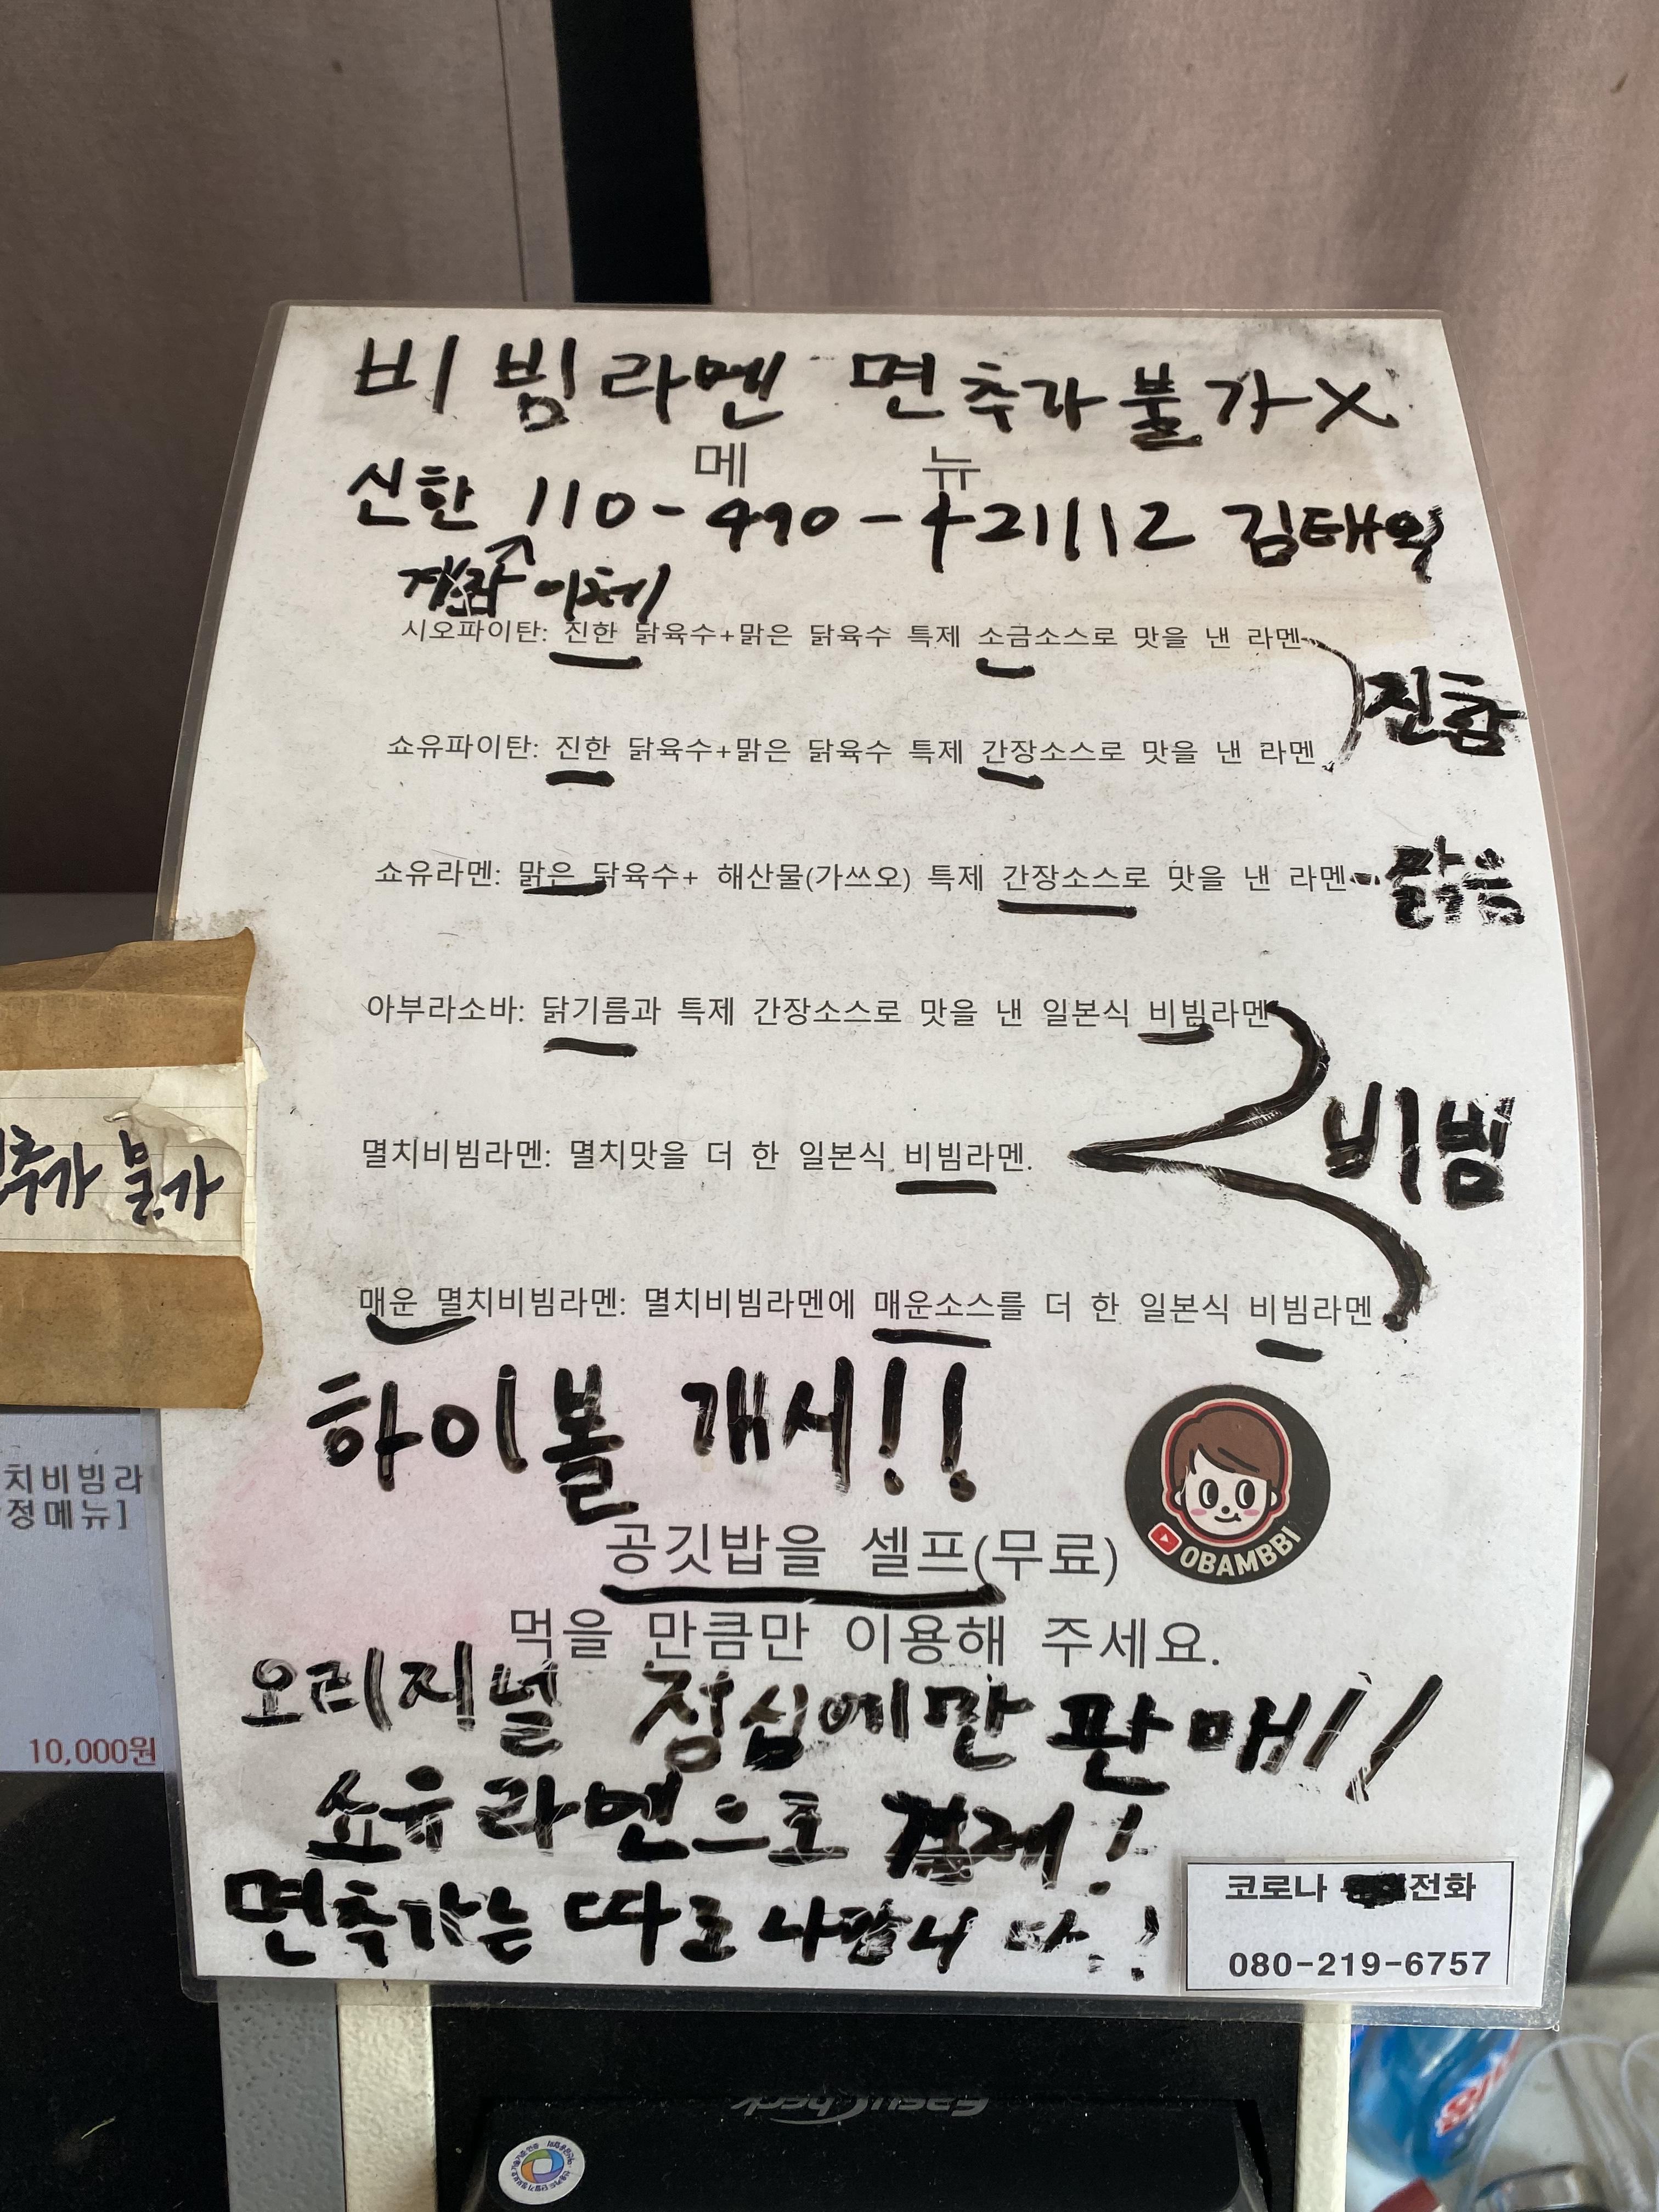 비빔라멘 면추가불가X
메 뉴
신한 110-490-421112 김태익
계좌이체
시오파이탄: 진한 닭육수+맑은 닭육수 특제 소금소스로 맛을 낸 라멘
진함
쇼유파이탄: 진한 닭육수+맑은 닭육수 특제 간장소스로 맛을 낸 라멘
쇼유라멘: 맑은 닭육수+ 해산물(가쓰오) 특제 간장소스로 맛을 낸 라멘
맑음
아부라소바: 닭기름과 특제 간장소스로 맛을 낸 일본식 비빔라멘
비빔
멸치비빔라멘: 멸치맛을 더 한 일본식 비빔라멘.
추가 불가
매운 멸치비빔라멘: 멸치비빔라멘에 매운소스를 더 한 일본식 비빔라멘
하이볼 개시!!
OBAMBBI
치비빔라
정메뉴]
10,000원
공깃밥을 셀프(무료)
먹을 만큼만 이용해 주세요.
오리지널 점심에만 판매!!
쇼유라멘으로 결제!
면추가는 따로 나갑니다.!
코로나 전화
080-219-6757
EasyCheck